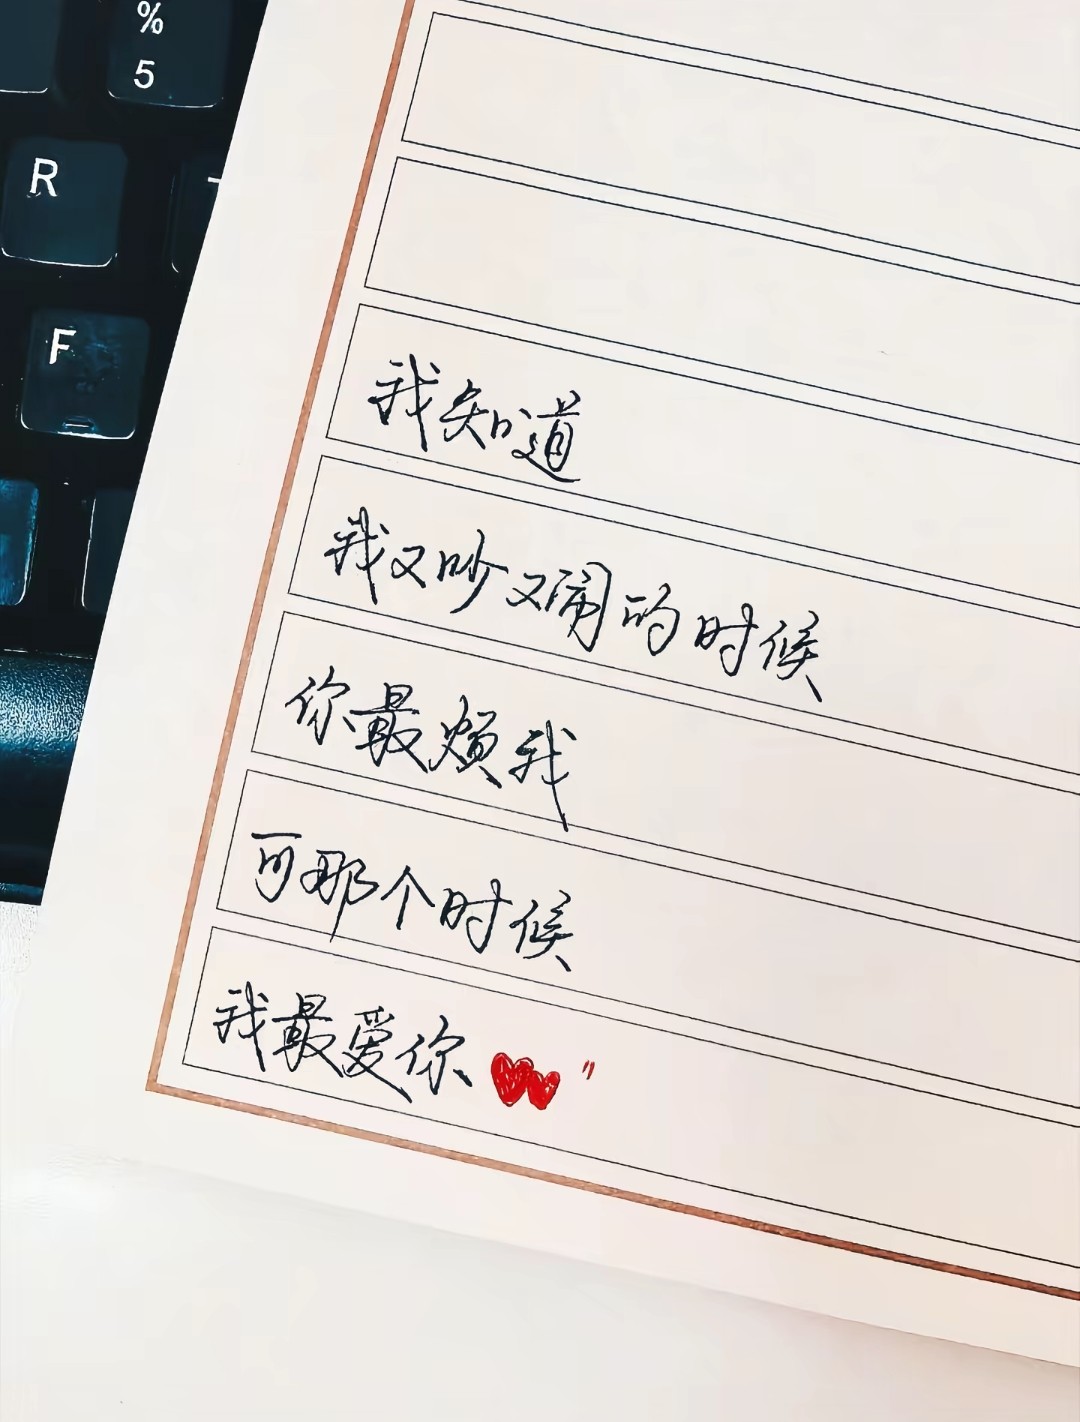 %
5
R
F
我知道
我又吵又闹的时候
你最烦我
可那个时候
我最爱你